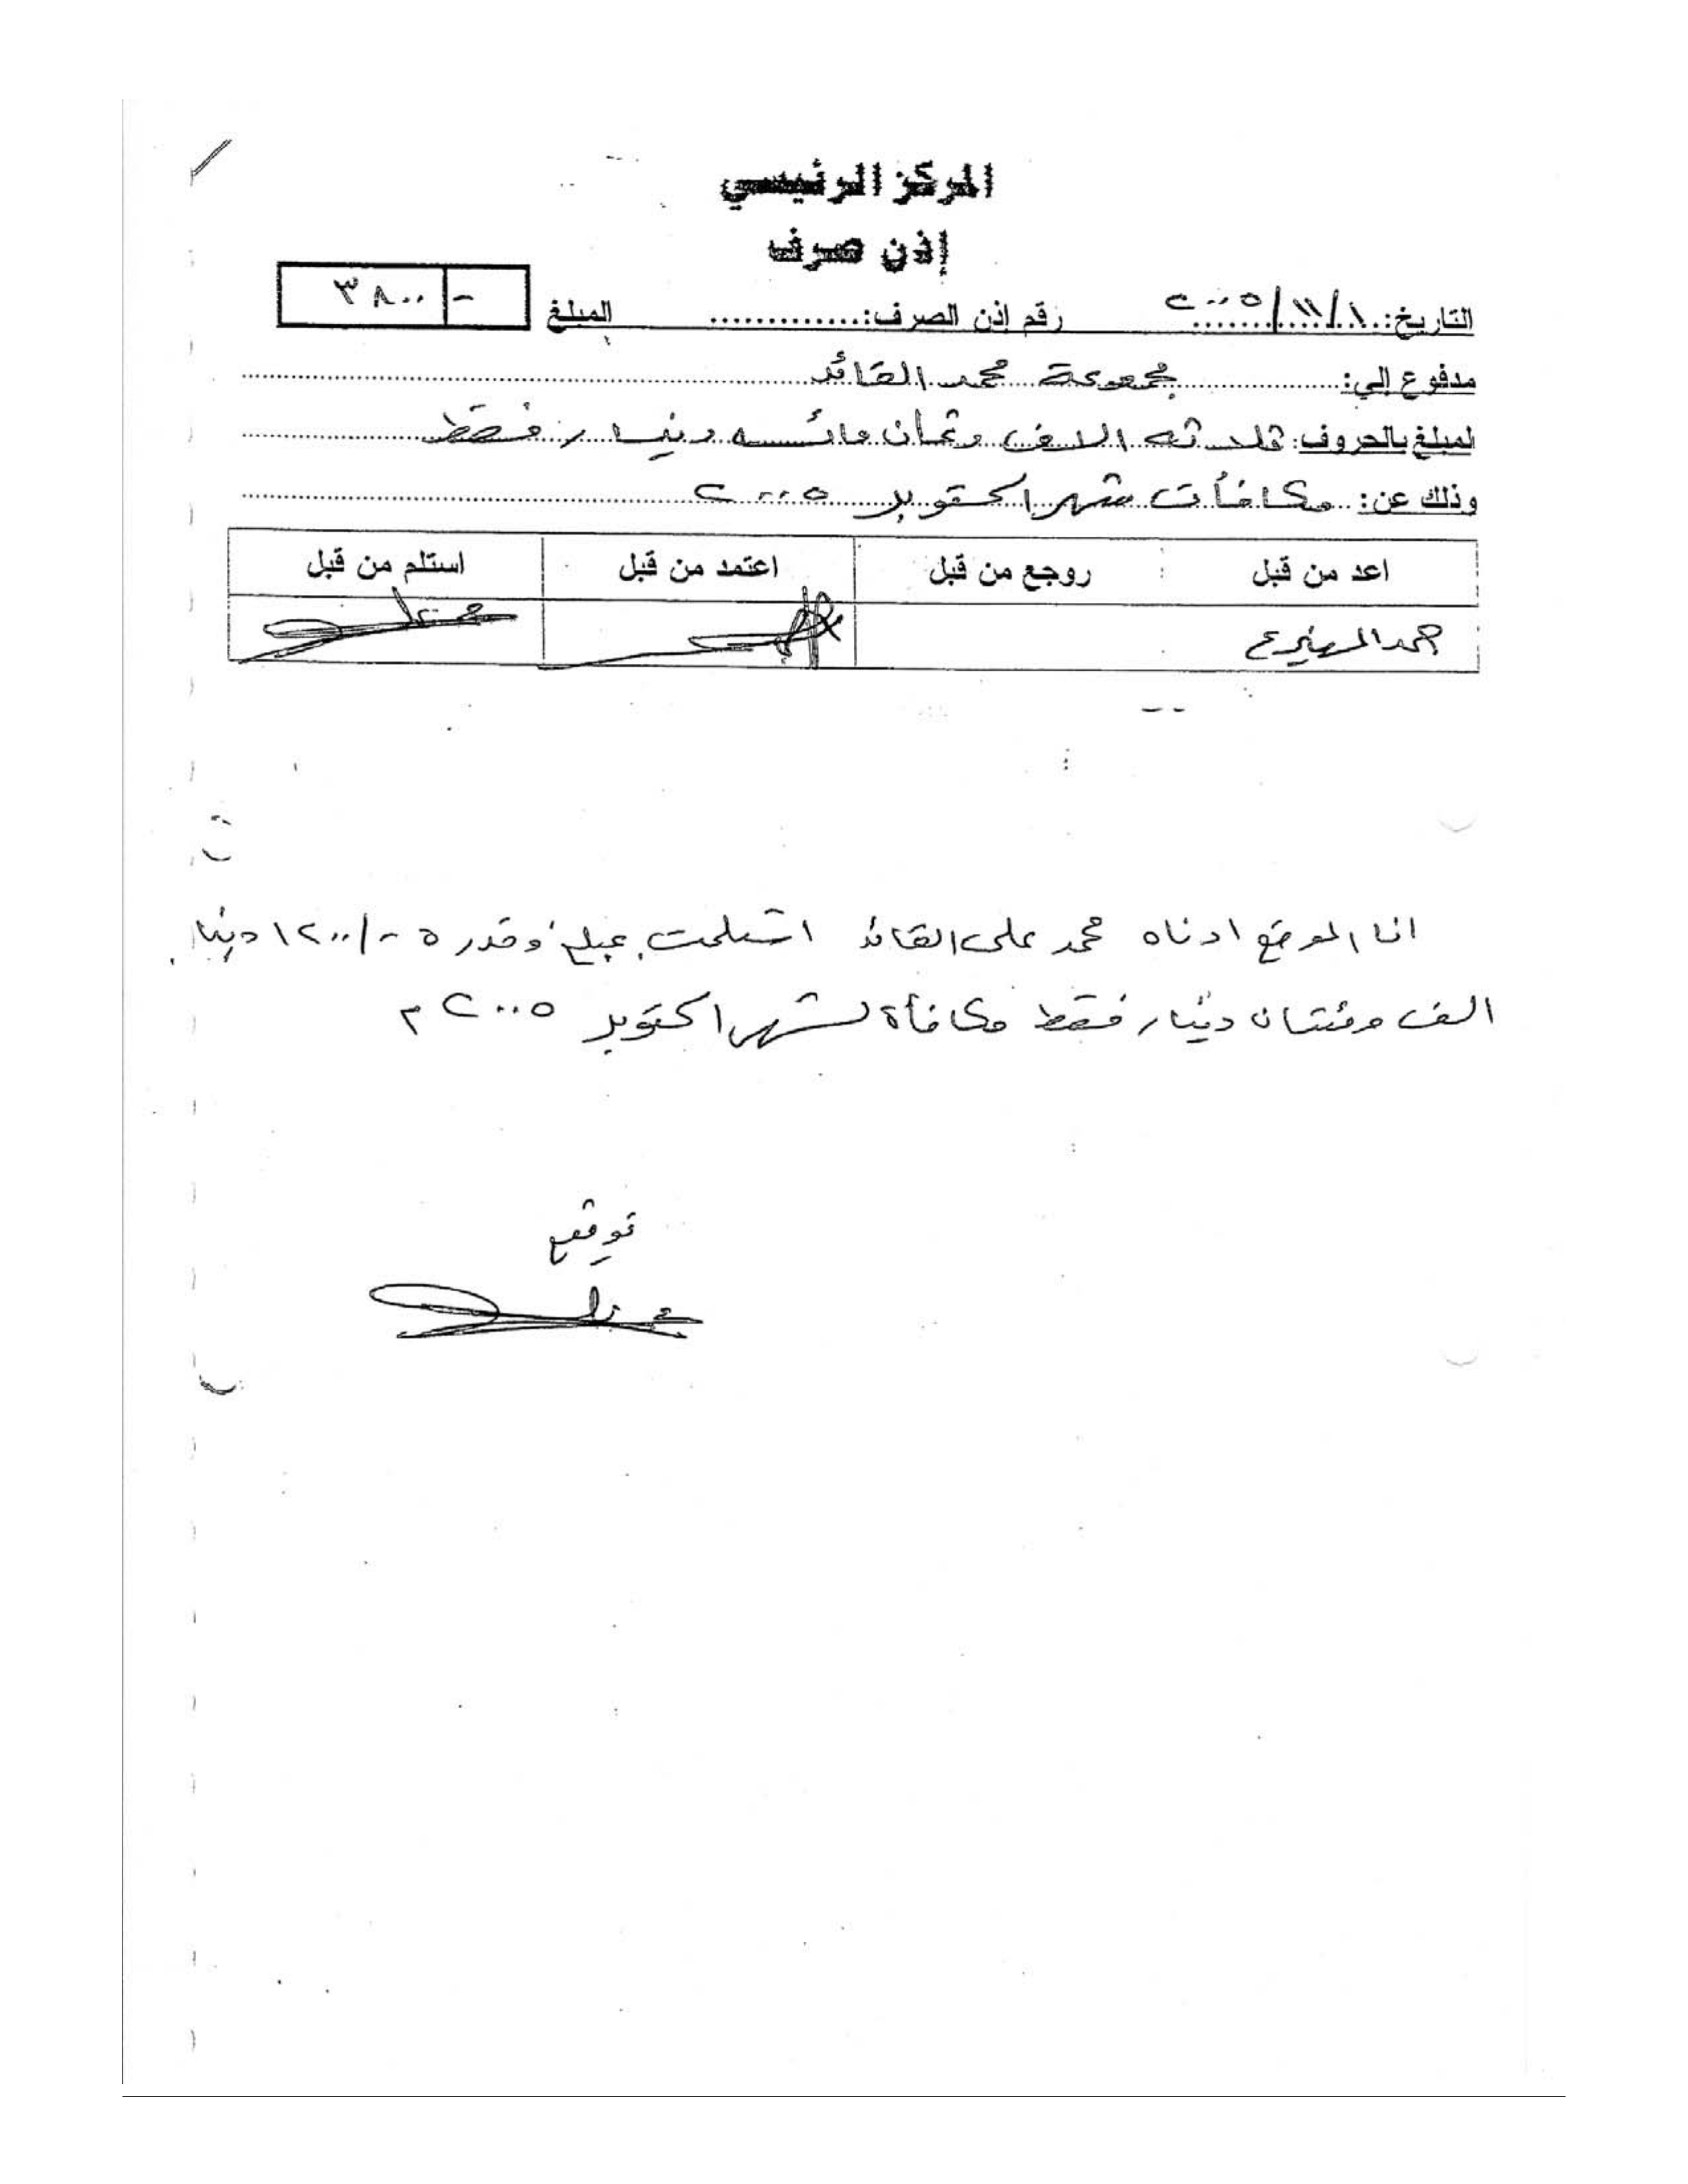 المركز الرئيسي
إذن صرف
التاريخ: ١/١١/٢٠٠٥ رقم إذن الصرف:.............. المبلغ ٣٨٠٠ -
مدفوع إلي: مجموعة محمد القائد
لمبلغ بالحروف: ثلاثه الاف وثمان مائه دينار فقط
وذلك عن: مكافأت شهر اكتوبر ٢٠٠٥
اعد من قبل روجع من قبل اعتمد من قبل استلم من قبل
انا الموقع ادناه محمد علي القائد استلمت مبلغ وقدره -/١٢٠٠ دينار
الف ومئتان دينار فقط مكافأة لشهر اكتوبر ٢٠٠٥ م
توقيع